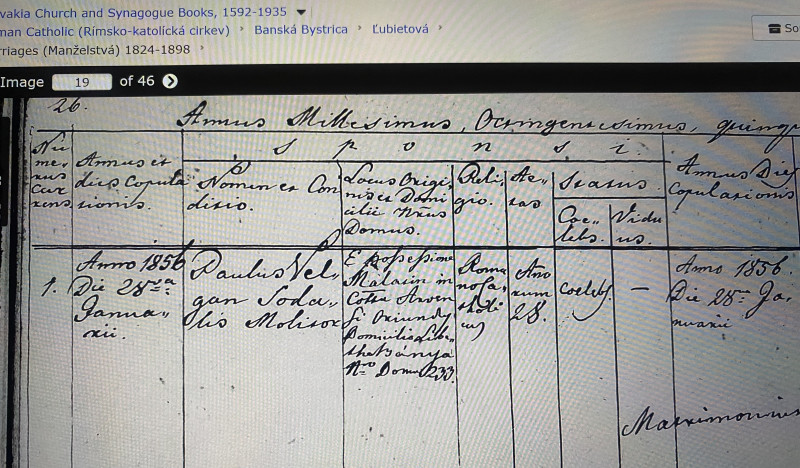 vakia Church and Synagogue Books, 1592-1935
man Catholic (Rímsko-katolícká cirkev) > Banská Bystrica > Ľubietová >
rriages (Manželstvá) 1824-1898 >
So
Image 19 of 46
26.
Annus Millesimus, Octingentesimus, quinqu
S p o n s i.
Nu
me-
rus
cur
rens.
Annus et
dies Copula
tionis.
Nomen et Con
ditio.
Locus Origi
nis et Domi
cilii Nrus
Domus.
Reli-
gio.
Ae-
tas
Status
Coe-
lebs.
Vidu
us.
Annus Dies
Copulationis
1.
Anno 1856
Die 28va
Janua-
rii.
Paulus Vel-
gan Soda-
lis Molitor
E possessione
Malatin in
Cottu Arven
si Oriundus
Domicilio Libe-
thabánya
Nro Domus 233.
Roma
no Ca-
tholi
cus
Ano
rum
28.
coelebs
—
Anno 1856.
Die 28va Ja-
nuarii
Matrimonium